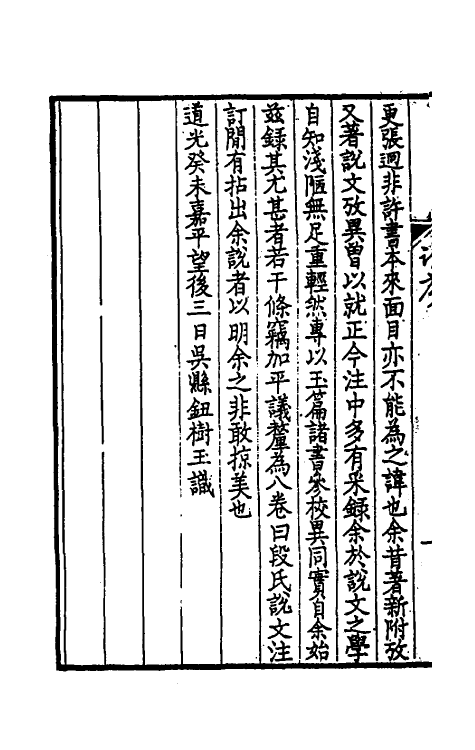 更張迥非許書本來面目亦不能為之諱也余昔著新附攷
又著說文攷異曾以就正今注中多有采錄余於說文之學
自知淺陋無足重輕然專以玉篇諸書參校異同實自余始
茲錄其尤甚者若干條竊加平議釐為八卷曰段氏說文注
訂閒有拈出余說者以明余之非敢掠美也
道光癸未嘉平望後三日吳縣鈕樹玉識